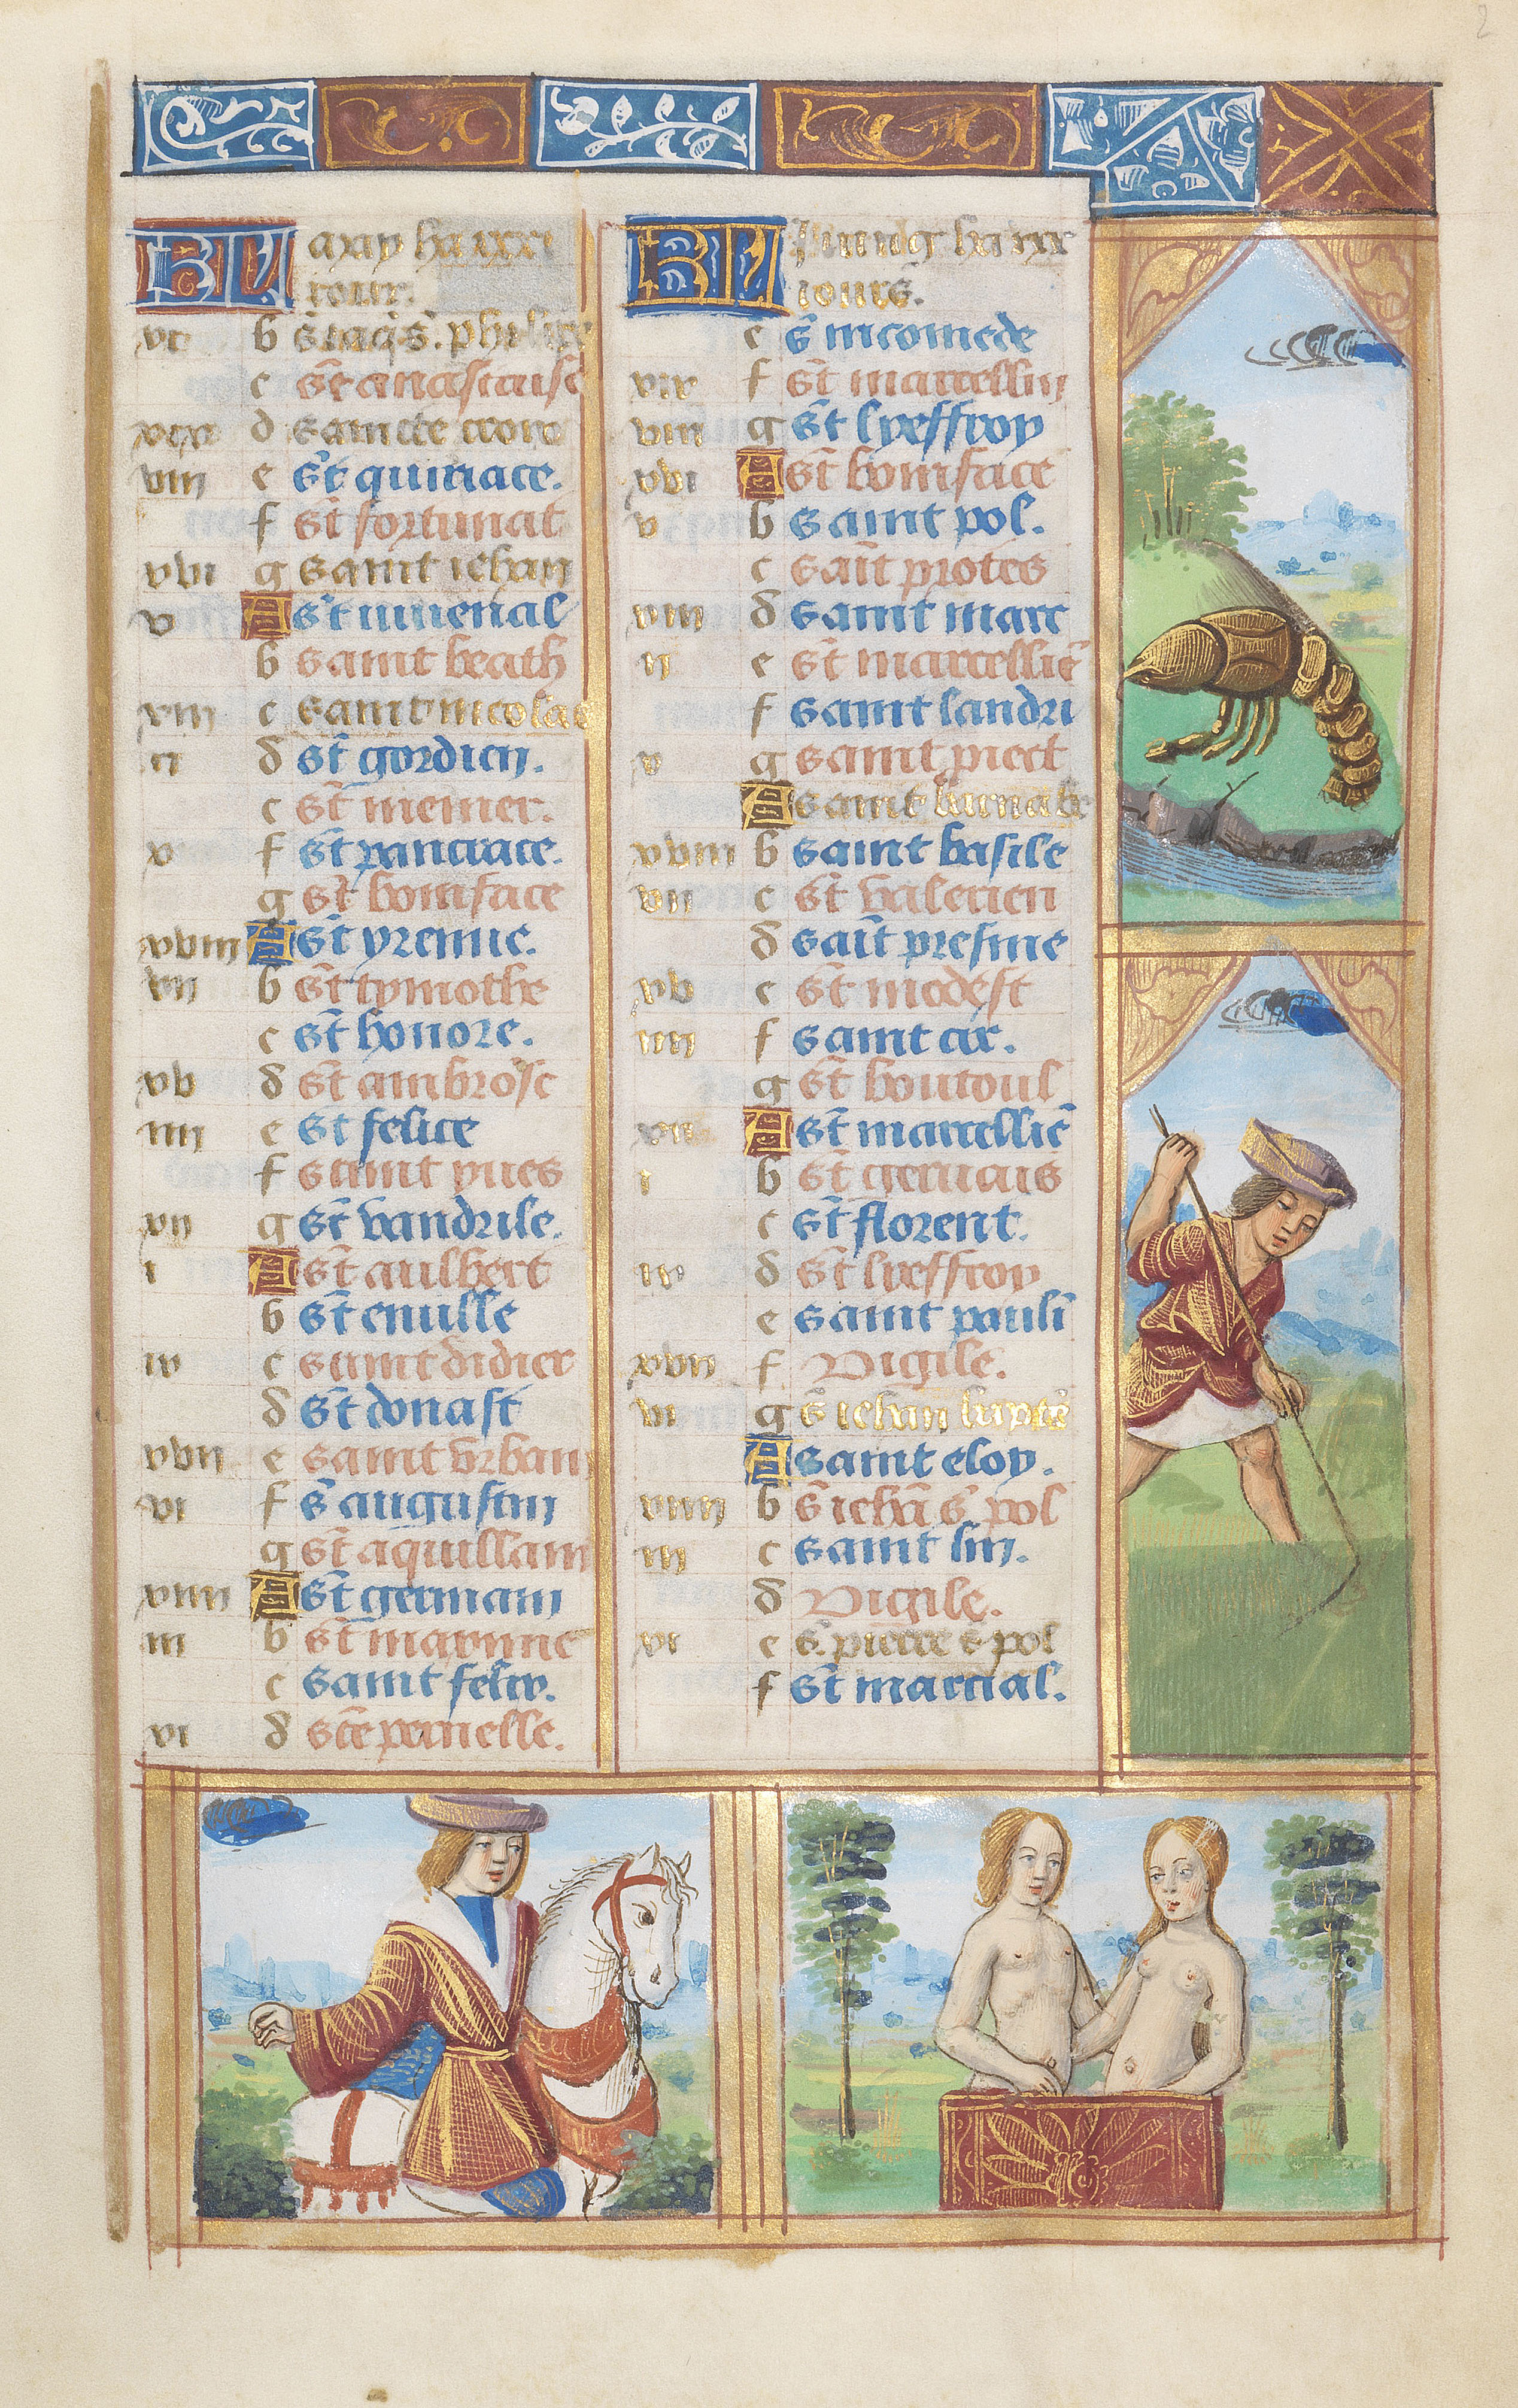 KL may ha xxxi
iour.
b s iaq̃s. philipe
c st̃ anastaise
xix d saincte croix
viii e s't quiriace.
f st fortunat
xvi g saint iehan
v A s't iuuenal
b saint beath
xiii c saint nicolas
ii d st̃ gordien.
c st̃ memer.
x f st̃ pancrace.
g st̃ boniface
xviii A st yremie.
vii b st̃ tymothe
c st̃ honore.
xv d st̃ ambrose
iiii e st felice
f saint yues
xii g st̃ vandrile.
i A st̃ aulbert
b st̃ enuille
ix c saint didier
d st̃ donast
xvii e saint vrban
vi f s̃ augustin
g st̃ aquillam
xiiii A st̃ germain
iii b st̃ marnne
c saint felix.
xi d st̃e pernelle.
KL Iuing ha xxx
iours.
e s̃ nicomede
xix f st̃ marcellin
viii g st̃ lyeffroy
xvi A st̃ boniface
v b saint pol.
c sait̃ protes
xiii d saint marc
ii e st̃ marcelliẽ
f saint landri
x g saint piect
A saint barnabe
xviii b saint basile
vii c st̃ valerien
d sait̃ presme
xv e st̃ modest
iiii f saint cir.
g st̃ boutoul
xii A st̃ marcelliẽ
i b st̃ geruais
c st̃ florent.
ix d st̃ lyeffroy
e saint pauli
xvii f Vigile.
vi g s̃ iehan bapte
A saint eloy.
xiiii b s̃ iehã s̃ pol
iii c saint lin.
d Vigile.
xi e s̃. pierre s̃ pol
f st̃ marcial.
2